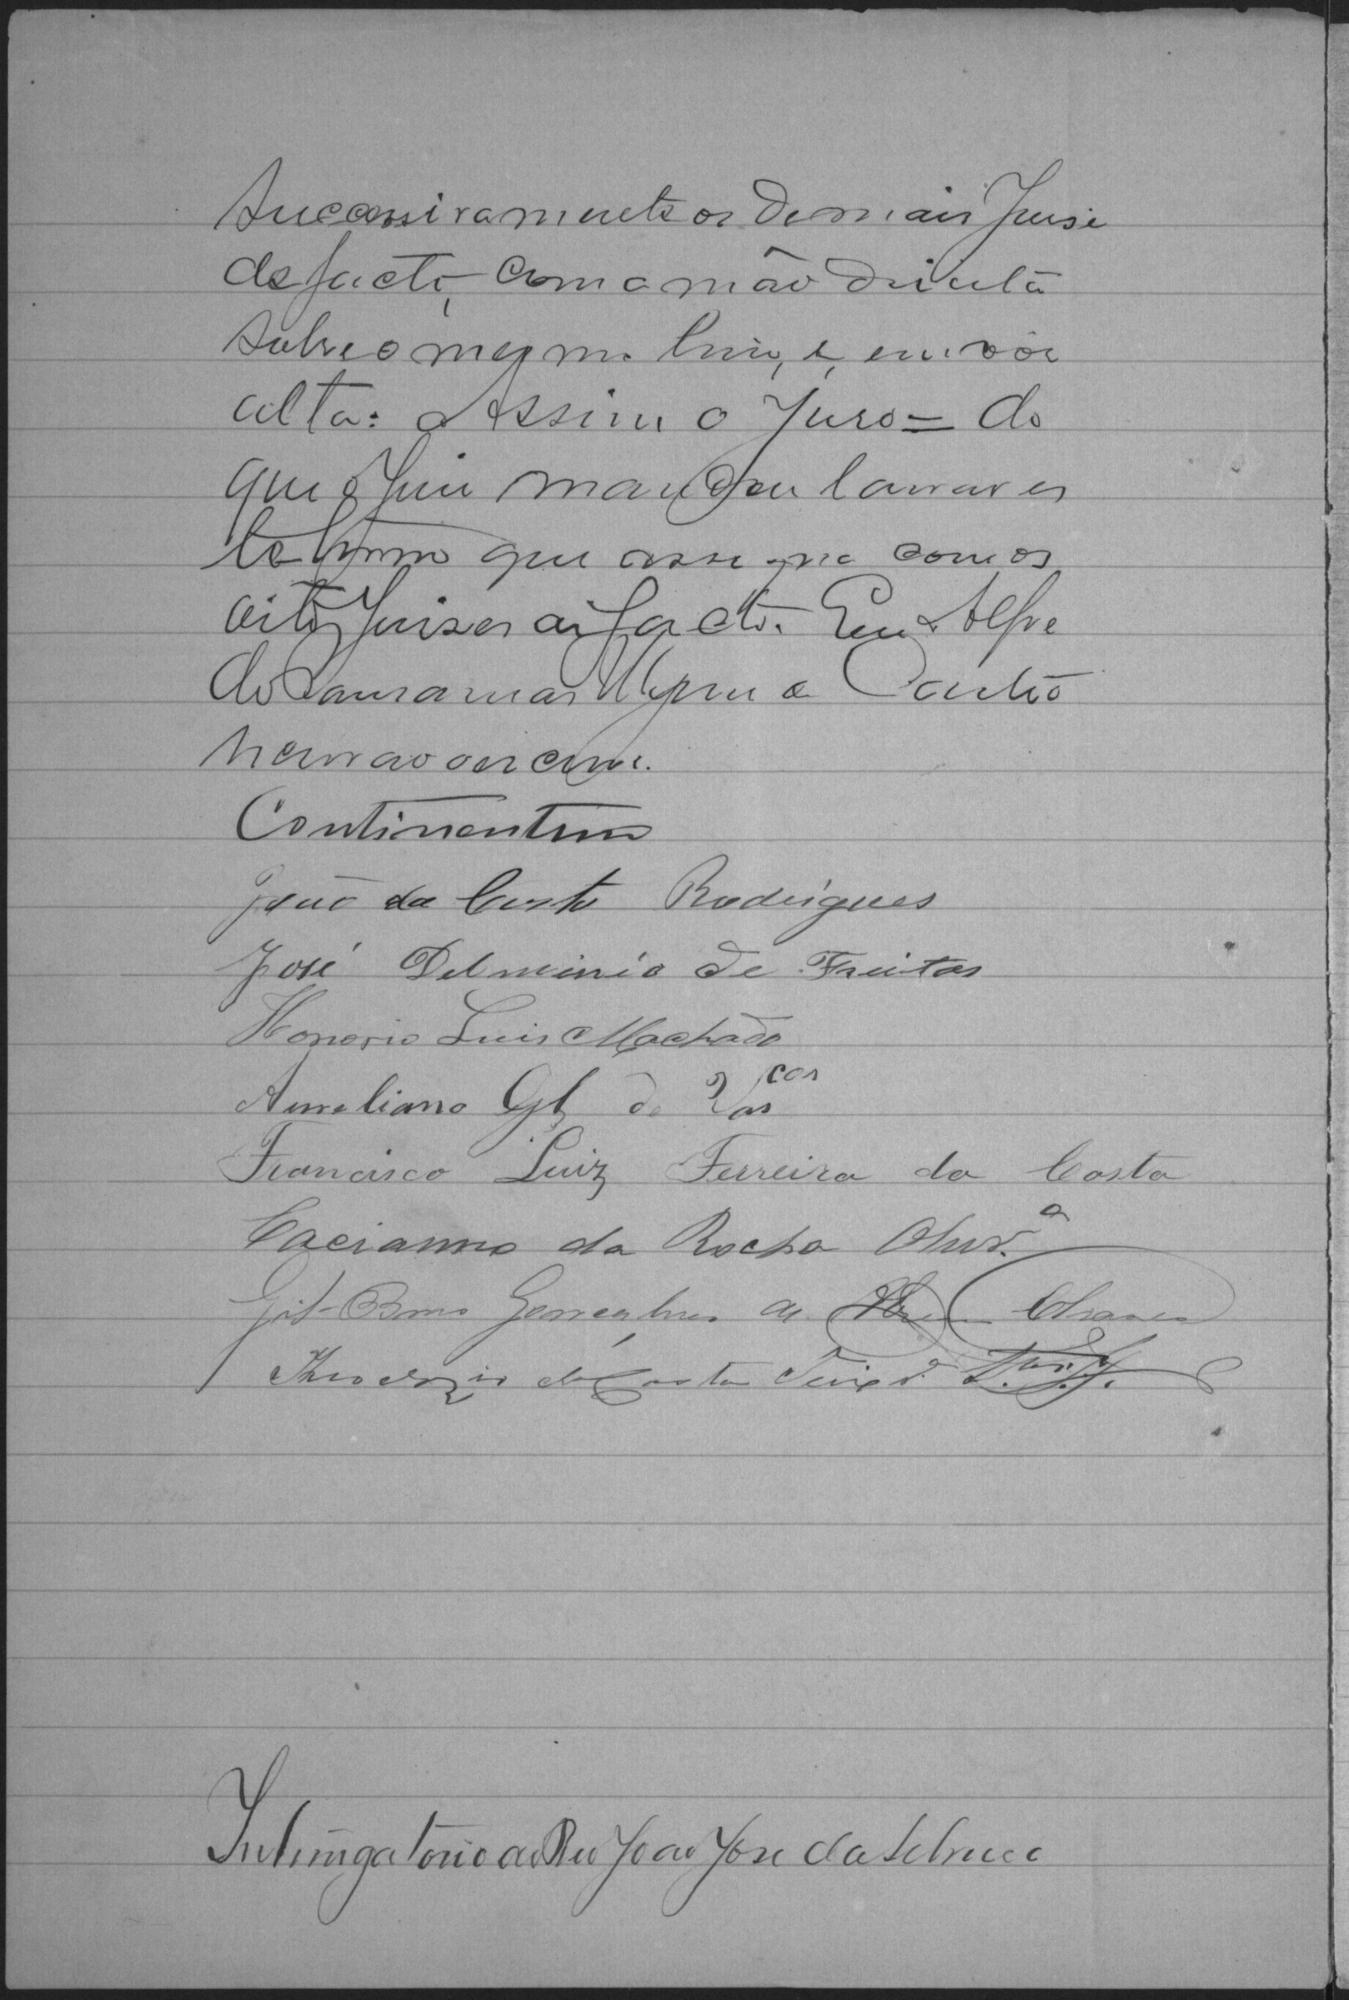 Successivamente os demais Juise
de facto, com a mão direita
sobre o mesmo livro, e, em vóz
alta: Assim o juro = do
que o Juiz mandou lavrar es
te termo que assigna com os
oito Juises de facto. Eu Alfre
do
escrevi.
Continentino
João da Costa Rodrigues
José Delminio de Freitas
Honorio Luis Machado
Aureliano Glz de Vas cos
Francisco Luiz Ferreira da Costa
Cacianno da Rocha Olivr.a
Gonçalves de Chaves
da Costa
Interrogatorio ao Reo João José da Silveira